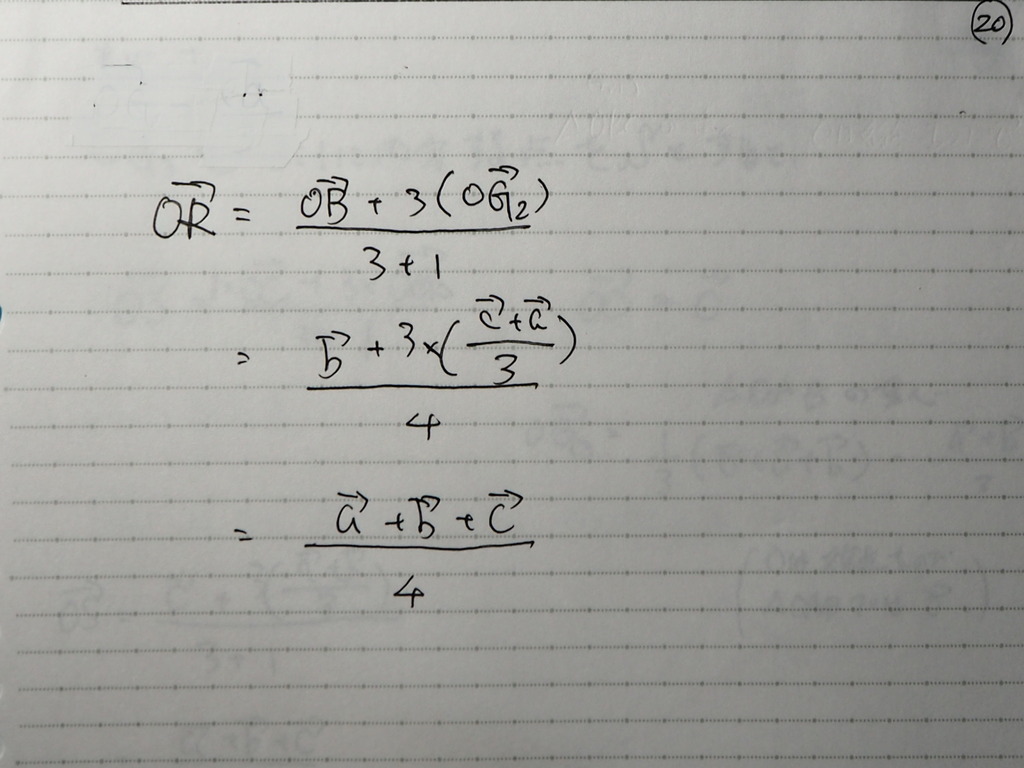 20
\vec{OR} = \frac{\vec{OB} + 3(\vec{OG_2})}{3+1}
= \frac{\vec{b} + 3 \times (\frac{\vec{c} + \vec{a}}{3})}{4}
= \frac{\vec{a} + \vec{b} + \vec{c}}{4}